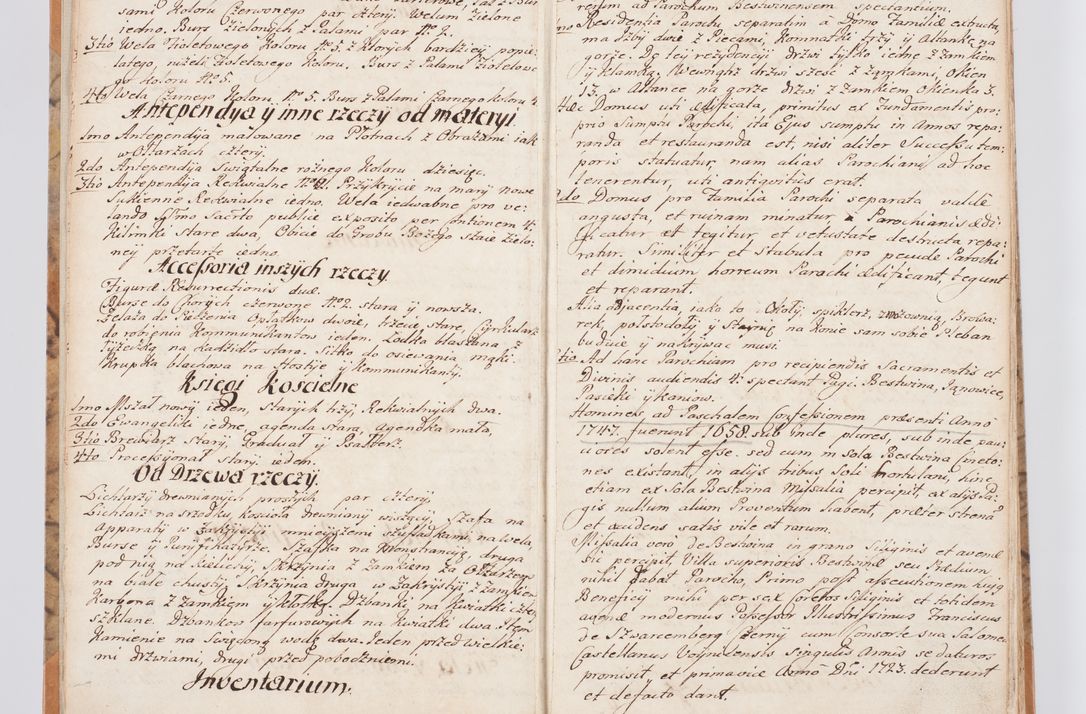 sami Koloru Czerwonego par cztery. Welum zielone
iedno. Burs Zielonych z Palami par No 2.
3tio Wela Fioletowego Koloru No 5. z których bardziey popie-
latego, niżeli Fioletowego koloru, Burs z Palami Fioletowe
go Koloru No 5.
4to Wela Czarnego Koloru No 5. Burs z Palami Czarnego koloru 4
Antependya ÿ inne rzeczy od materyi
1mo Antependija malowane na Płotnach z Obrazami iak
w Ołtarzach cztery.
2do Antependija Swiątalne rożnego Koloru dziesięć.
3tio Antependija Rekwialne No 2. Przÿkrÿcie na marÿ nowe
Sukienne Rekwialne iedno. Wela iedwabne pro ve-
lando SSmo Sacrto publice exposito per Contionem 4.
Kilimki stare dwa, Obicie do Grobu Bożego stare zielo-
ney przetarte iedno.
Accessoria inszÿch rzeczy.
Figuræ Resurrectionis duæ.
Burse do Chorÿch czerwone No 2. stara ÿ nowsza.
Żelaza do Pieczenia Opłatkow dwoie, trzecie stare, Cÿrkularz
do robienia Kommunikantow ieden. Łodka blaszana z
łÿżeczką na Kadzidło stara. Sitko do osiewania mąki.
Krupka blachowa na Hostÿe ÿ Kommunikantÿ.
Księgi Koscielne
1mo Mszał nowÿ ieden, starÿch trzÿ, Rekwialnÿch dwa.
2do Ewangeliki iedne, agenda stara, agendka mała,
3tio Brewiarz Starÿ, Graduał ÿ Psałterz.
4to Processÿonał starÿ ieden.
Od Drzewa rzeczy.
Lichtarzÿ drewnianÿch prostÿch par czterÿ.
Lichtarz na srzodku koscioła drewnianÿ wiszącÿ, Szafa na
Apparatÿ w Zakrÿstÿi z mnieÿszemi szufladkami na Wela,
Burse ÿ Purÿfikaterze. Szafka na Monstrancÿą, druga
pod nią na Kielichÿ, Skrzÿnia z Zamkiem za Ołtarzem
na białe chustÿ. Skrzÿnia druga w Zakrÿstÿi z Zamkiem
Karbona z Zamkiem ÿ kłotką. Dzbanki na Kwiatki czterÿ
szklane. Dzbankow furfurowÿch na kwiatki dwa. Item
Kamienie na Swięconą wodę dwa. Jeden przed wielkie-
mi drzwiami, drugi przed pobocznemi.
Inventarium.
rerum ad Parochum Bestwinensem spectantium.
mo Residentia Parochi separatim a Domo Familiæ exstructa,
ma Izbÿ dwie z Piecami, Komnatki trzÿ ÿ Altankę na
gorze. Do teÿ rezÿdencÿi drzwi tÿlko iedne z zamkiem
ÿ klamką, Wewnątrz drzwi szesć z zamkami, Okien
13. w Altance na gorze drzwi z zamkiem Okienka 3.
Hæc Domus uti ædificata, primitus ex Fundamentis pro-
prio Sumptu Parochi, ita Ejus sumptu in Annos repa-
randa et restauranda est, nisi aliter Successu tem-
poris statuatur, nam alias Parochiani ad hoc
tenerentur, uti antiquitus erat.
2do Domus pro Familia Parochi separata valde
angusta, et ruinam minatur, a Parochianis ædi-
ficatur et tegitur, et vetustate destructa repa-
ratur. Similiter et Stabula pro pecude Parochi
et dimidium horreum Parochi ædificant, tegunt
et reparant.
Alia adjacentia, iako to: Okolÿ, spiklerz, zwozownią, Browa-
rek, połstodołÿ, ÿ Staÿnię na Konie sam sobie Pleban
buduie ÿ nakrÿwać musi.
tio Ad hanc Parochiam pro recipiendis Sacramentis et
Divinis audiendis 4. spectant Pagi. Bestwina, Janowice,
Pasieki ÿ Kaniow.
Homines ad Paschalem Confessionem præsenti Anno
1747. fuerunt 1058. sub inde plures, sub inde pau-
ciores solent esse. sed cum in sola Bestwina Cmeto-
nes existant, in alijs tribus Soli hortulani, hinc
etiam ex Sola Bestwina Missalia percipit, ex alijs Pa-
gis nullum alium Proventum habent, præter strena
et accidens satis vile et rarum.
Missalia vero de Bestwina in grano Siliginis et avenæ
sic percipit, Villa superioris Bestwinæ seu Prædium
nihil dabat Parocho, Primo post assecutionem hujus
Beneficÿ mihi per sex Coretos Siliginis et totidem
avenæ modernus Possessor Illustrissimus Franciscus
de Szwarcemberg Czernÿ cum Consorte sua Salomea
Castellanus Voÿnicensis singulis Annis se daturos
promisit, et primavice Anno Dni 1723. dederunt
et defacto dant.